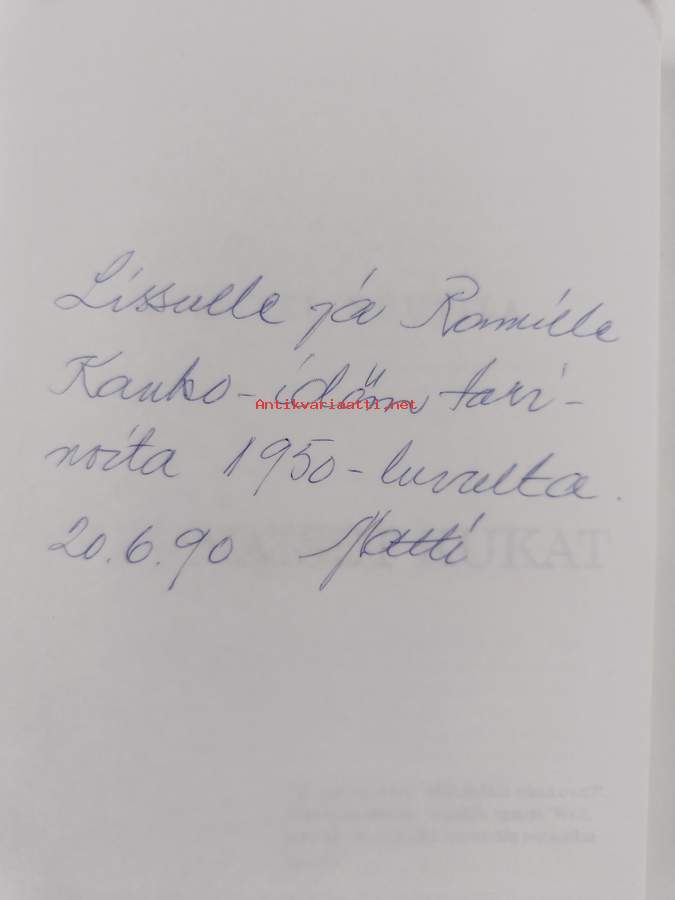 Lissulle ja Ramille
Kauko-idän tari-
noita 1950-luvulta.
20.6.90 Matti
Antikvariaatti.net
UKAT